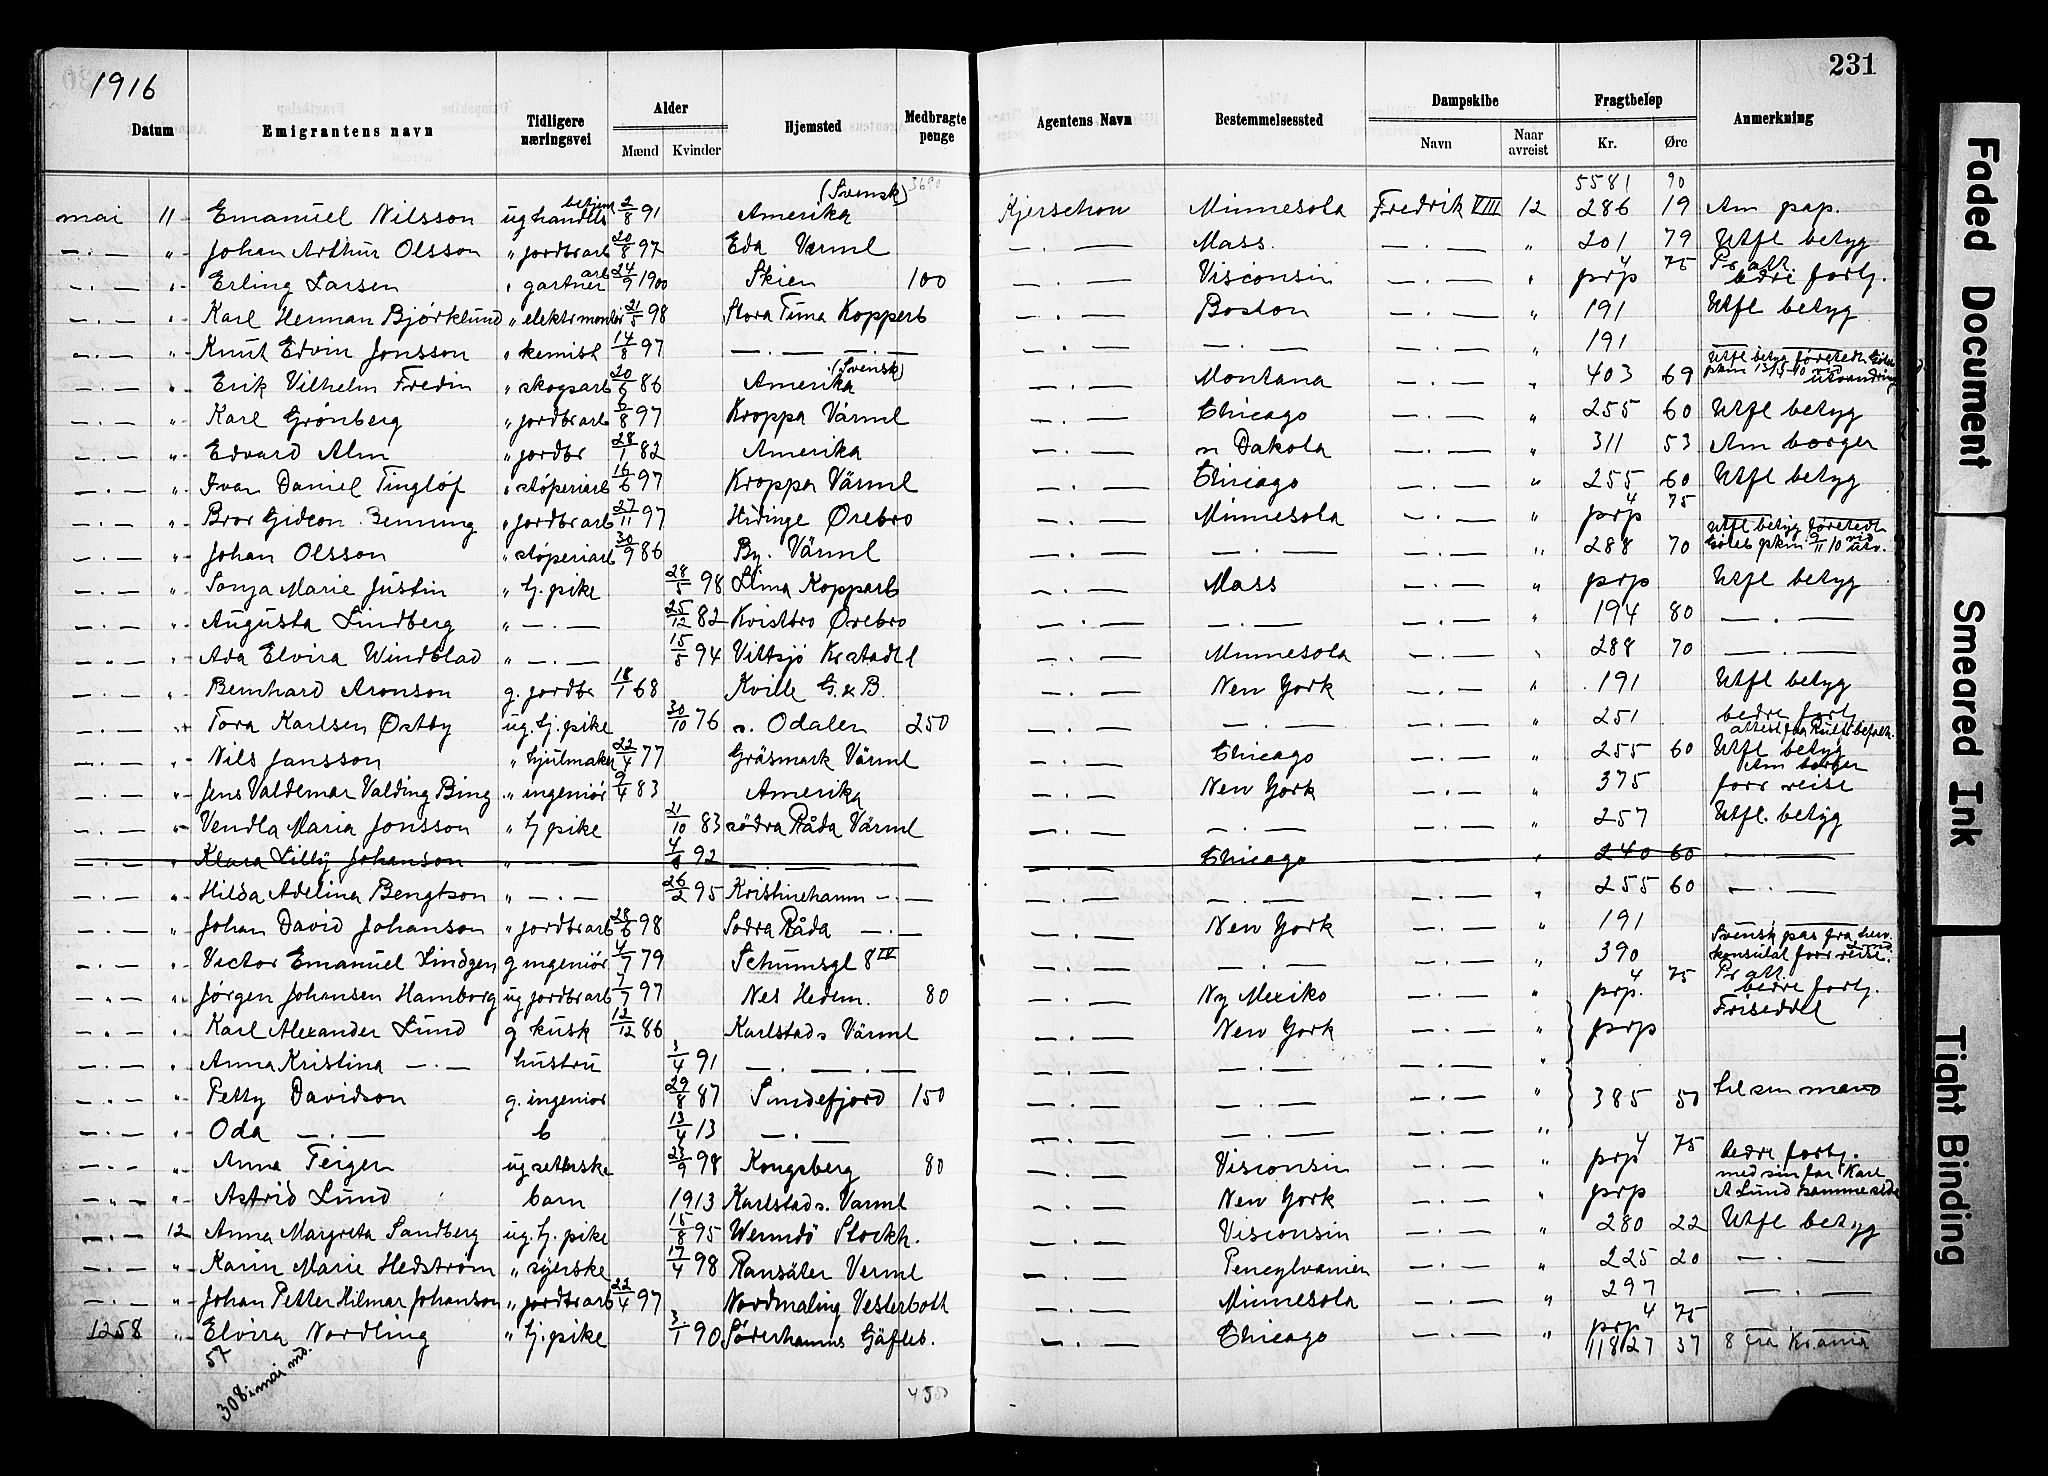 1916
231
Datum Emigrantens navn Tidligere næringsvei Alder Mænd Kvinder Hjemsted Medbragte penge Agentens Navn Bestemmelsessted Dampskibe Navn Naar avreist Fragtbeløp Kr. Øre Anmerkning
3690 5581 90
mai 11 Emanuel Nilsson ug handls betjent 2/8 91 Amerika (Svensk) Kjerschow Minnesota Fredrik VIII 12 286 19 Am pap.
— . — " Johan Arthur Olsson " jordbrarb 20/8 97 Eda Värml — . — Mass. — . — " 201 79 Utfl betyg
— . — " Erling Larsen " gartner arb 24/9 1900 Skien 100 — . — Visconsin — . — " prp 4 75 Pr att. bedre fortj.
— . — " Karl Herman Bjørklund " elektr montør 21/5 98 Stora Tuna Kopperb — . — Boston — . — " 191 Utfl betyg
— . — " Knut Edvin Jonsson " kemist 14/8 97 — . — . — — . — — . — — . — " 191 — . —
— . — " Erik Vilhelm Fredin " skogsarb 20/5 86 Amerika (Svensk) — . — Montana — . — " 403 69 Utfl betyg företedt Göteb pkm 13/5-10 vid utvandring
— . — " Karl Grønberg " jordbrarb 6/8 97 Kroppa Värml — . — Chicago — . — " 255 60 Utfl betyg
— . — " Edvard Alm " jordbr 28/1 82 Amerika — . — n Dakota — . — " 311 53 Am borger
— . — " Ivar Daniel Tingløf " støperiarb 16/6 97 Kroppa Värml — . — Chicago — . — " 255 60 Utfl betyg
— . — " Bror Gideon Benning " jordbrarb 27/11 97 Hidinge Ørebro — . — Minnesota — . — " prp 4 75 — . —
— . — " Johan Olsson " støperiarb 30/9 86 By. Värml — . — — . — — . — " 288 70 Utfl betyg företedt Göteb pkm 9/11 10 vid utv.
— . — " Sonja Marie Justin " tj. pike 28/5 98 Lima Kopparb — . — Mass — . — " prp Utfl betyg
— . — " Augusta Lindberg " — . — 25/12 82 Kvistbro Ørebro — . — — . — — . — " 194 80 — . —
— . — " Ada Elvira Windblad " — . — 15/5 94 Vittsjö Kr.stadl — . — Minnesota — . — " 288 70 — . —
— . — " Bernhard Aronson g. jordbr 18/1 68 Kville G. & B. — . — New York — . — " 191 Utfl betyg
— . — " Tora Karlsen Østby ug. tj. pike 30/10 76 s. Odalen 250 — . — — . — — . — " 251 bedre fortj.
— . — " Nils Jansson " hjulmaker 22/4 77 Gräsmark Värml — . — Chicago — . — " 255 60 Utfl betyg
— . — " Jens Valdemar Valding Bing " ingeniør 9/4 83 Amerika — . — New York — . — " 375 Am borger forr reise
— . — " Vendla Maria Jonsson " tj pike 21/10 83 södra Råda Värml — . — — . — — . — " 257 Utfl. betyg
— . — " Klara Lilly Johanson " — . — 4/8 92 — . — — . — Chicago — . — " 240 60 — . —
— . — " Hilda Adelina Bengtson " — . — 26/2 95 Kristinehamn — . — — . — — . — — . — " 255 60 — . —
— . — " Johan David Johanson " jordbrarb 28/6 98 Södra Råda — . — — . — New York — . — " 191 — . —
— . — " Victor Emanuel Lindgen g ingeniør 4/7 79 Schumsgt 8 IV — . — — . — — . — " 390 Svensk pas fra herv. konsulat forr reise.
— . — " Jørgen Johansen Hamborg ug jordbrarb 1/7 97 Nes Hedem. 80 — . — Ny Mexiko — . — " prp. 4 75 Pr att. bedre fortj.
— . — " Karl Alexander Lund g kusk 12/12 86 Karlstad s Värml — . — New York — . — " prp Friseddel
— . — " Anna Kristina — . — hustru 3/4 91 — . — . — — . — — . — — . — "
— . — " Petty Davidson g. ingenior 29/8 87 Sandefjord 150 — . — — . — — . — " 385 50 til sin mand
— . — " Oda — . — b 13/4 13 — . — — . — — . — — . — "
— . — " Anna Teigen ug 23/9 98 Kongsberg 80 — . — Visconsin — . — " prp 4 75 bedre fortj.
— . — " Astrid Lund barn 1913 Karlstad s. Varml — . — New York — . — " prp med sin far Karl A Lund samme side
— . — 12 Anna Margreta Sandberg ug. tj. pike 15/8 95 Wermdö Stockh. — . — Visconsin — . — " 280 22 Utfl betyg
— . — " Karin Marie Hedström " syerske 17/4 98 Ransäter Verml — . — Pencylvanien — . — " 225 20 — . —
— . — " Johan Petter Hilmar Johanson " jordbrarb 22/4 97 Nordmaling Vesterbott — . — Minnesota — . — " 297 — . —
1258 " Elvira Nordling " tj. pike 3/1 90 Söderhamns Gäfleb. — . — Chicago — . — " prp 4 75 — . —
57 11827 37 8 fra Kr.ania
308 i mai md.
450
Faded Document
Smeared Ink
Tight Binding